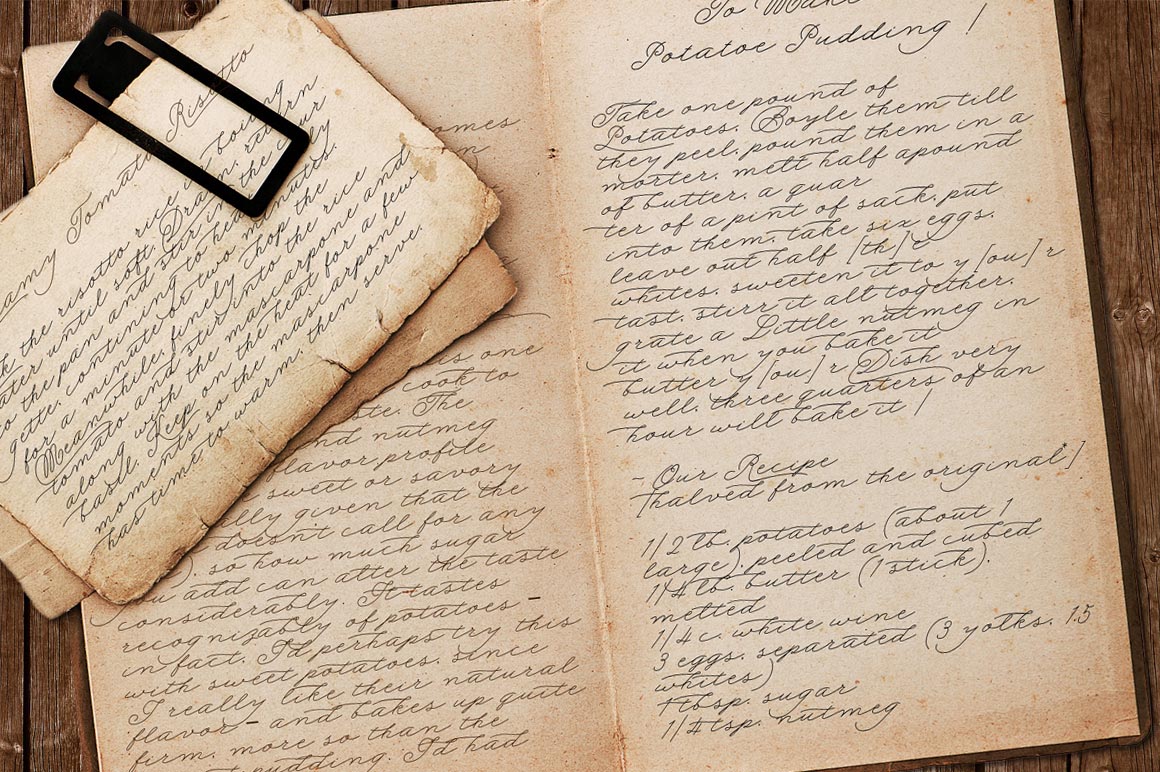 amy Tomato Risotto
the risotto rice in boiling
ater until soft. Drain, return
to the pan and stir in the
gette, continuing to heat
for a minute or two minutes.
Meanwhile, finely chop the
tomato and stir into the rice
along with the mascarpone and
basil. Keep on the heat for a few
moments so the mascarpone
has time to warm, them serve.
omes
is one
cook to
ste. The
nd nutmeg
flavor profile
sweet or savory
lly given that the
doesn't call for any
), so how much sugar
u add can alter the taste
considerably. It tastes
recognizably of potatoes –
in fact, I'd perhaps try this
with sweet potatoes, since
I really like their natural
flavor – and bakes up quite
firm, more so than the
pudding I'd had
To Make
Potatoe Pudding !
Take one pound of
Potatoes, Boyle them till
they peel, pound them in a
morter, melt half apound
of butter, a quar
ter of a pint of sack, put
into them, take six eggs,
leave out half [th] e
whites, sweeten it to y [ou] r
tast, stirr it alt together,
grate a Little nutmeg in
it when you bake it
butter y [ou] r Dish very
well, three quarters of an
hour will bake it !
- Our Recipe
[halved from the original*]
1/2 lb. potatoes (about 1
large), peeled and cubed
1/4 lb. butter (1 stick),
melted
1/4 c. white wine
3 eggs, separated (3 yolks, 1.5
whites)
1 tbsp. sugar
1/4 tsp. nutmeg